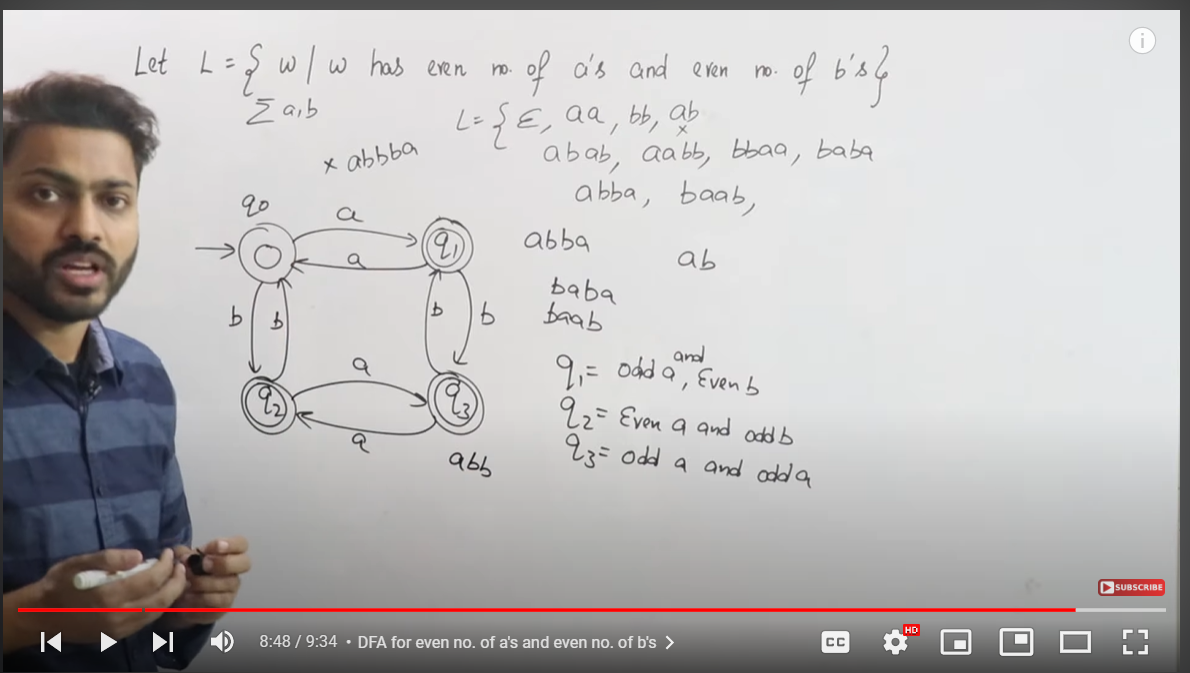 Let L = { w / w has even no. of a's and even no. of b's }
Σ a,b
L = { ε, aa, bb, ab
x
x abbba
abab, aabb, bbaa, baba
abba, baab,
q0
a
q1
a
abba
ab
baba
baab
b
b
b
b
q1 = odd a and, Even b
a
q2
q3
q2 = Even a and odd b
a
q3 = odd a and odd a
abb
SUBSCRIBE
8:48 / 9:34 • DFA for even no. of a's and even no. of b's
CC
HD
i